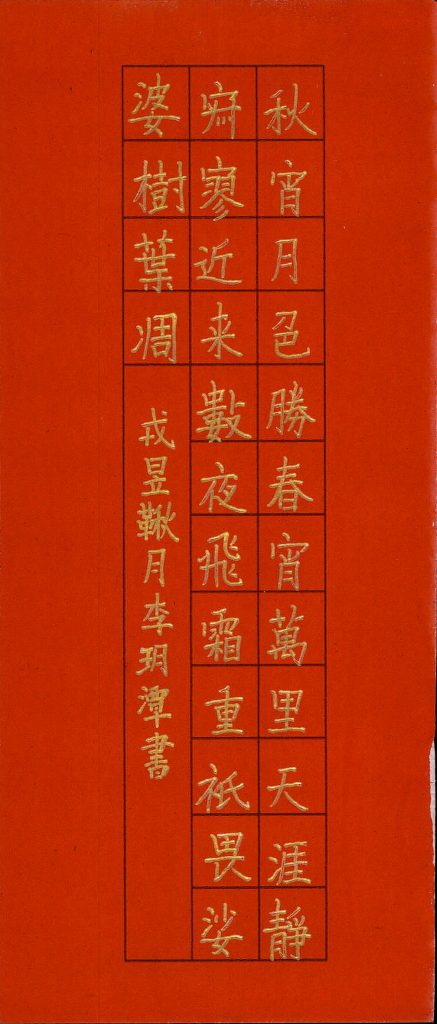 秋宵月色勝春宵萬里天涯靜
寂寥近来數夜飛霜重祇畏娑
婆樹葉凋
戎昱鞦月李玥潭書